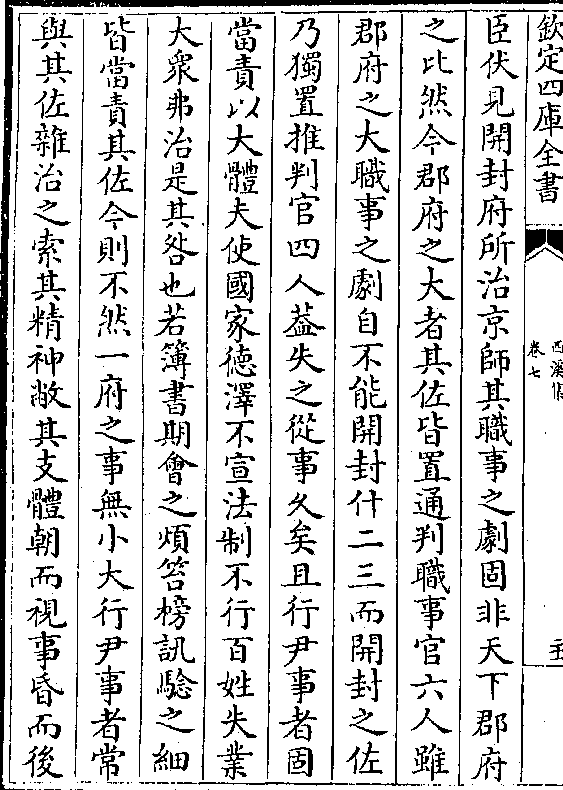 欽定四庫全書
西溪集
卷七
臣伏見開封府所治京師其職事之劇固非天下郡府
之比然今郡府之大者其佐皆置通判職事官六人雖
郡府之大職事之劇自不能開封什二三而開封之佐
乃獨置推判官四人葢失之從事久矣且行尹事者固
當責以大體夫使國家德澤不宣法制不行百姓失業
大衆弗治是其咎也若簿書期會之煩笞榜訊驗之細
皆當責其佐今則不然一府之事無小大行尹事者常
與其佐雜治之索其精神敝其支體朝而視事昏而後